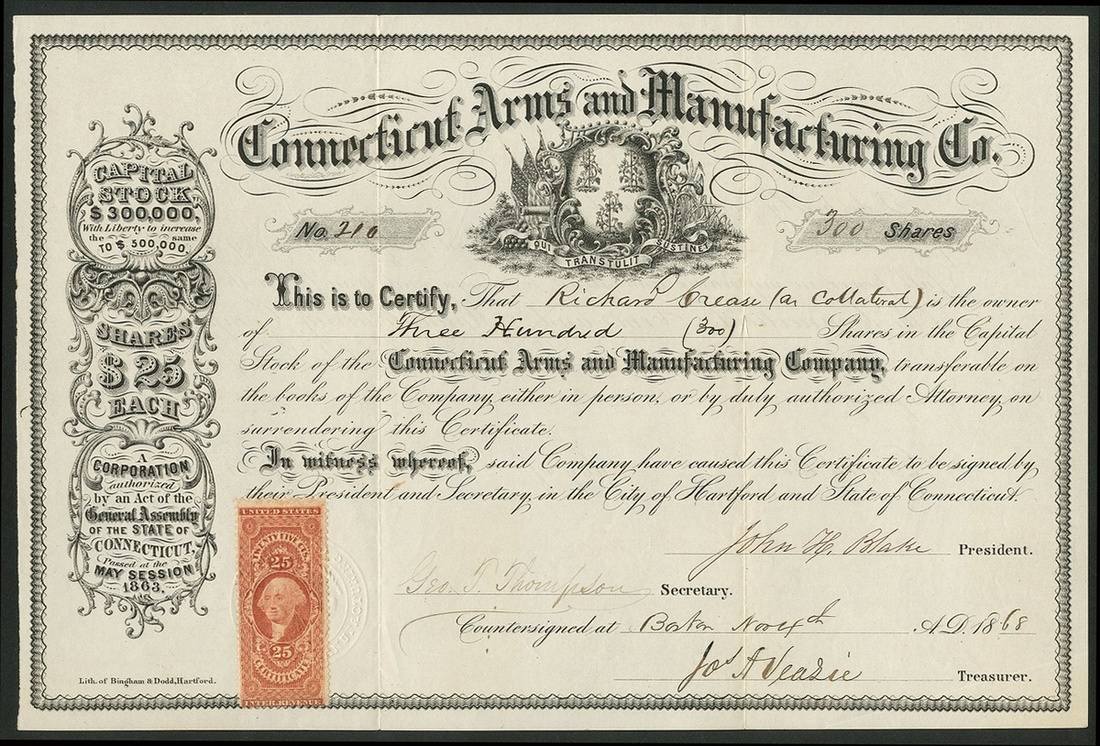 Connecticut Arms and Manufacturing Co.
CAPITAL
STOCK,
$300,000,
With Liberty to increase
the same
TO $500,000.
SHARES
$25
EACH
A
CORPORATION
authorized
by an Act of the
General Assembly
OF THE STATE OF
CONNECTICUT,
Passed at the
MAY SESSION
1863.
No. 210
300 Shares
QUI TRANSTULIT SUSTINET
This is to Certify, That Richard Crease (as Collateral) is the owner
of Three Hundred (300) Shares in the Capital
Stock of the Connecticut Arms and Manufacturing Company, transferable on
the books of the Company, either in person, or by duly authorized Attorney, on
surrendering this Certificate.
In witness whereof, said Company have caused this Certificate to be signed by
their President and Secretary, in the City of Hartford and State of Connecticut.
UNITED STATES
TWENTY FIVE CTS.
25
25
CERTIFICATE
INTER. REVENUE
John H. Blake President.
Geo. T. Thompson Secretary.
Countersigned at Boston Nov 4th A.D. 1868
Jos A Veazie Treasurer.
Lith. of Bingham & Dodd, Hartford.